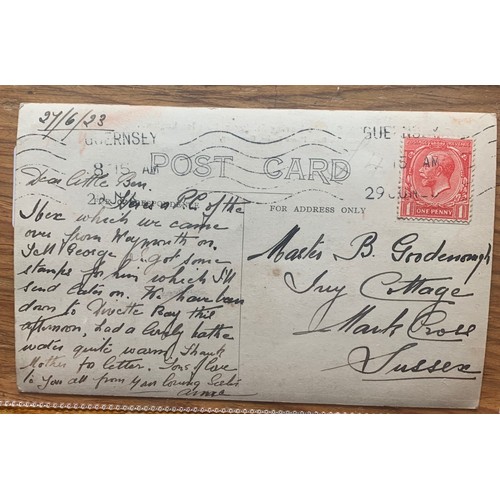 27/6/23
GUERNSEY
8.15 AM
GUERNSEY
15 AM
29 JUN
POST CARD
FOR ADDRESS ONLY
ONE PENNY
Dear little Ben.
Here's a P.C. of the
Ibex which we came
over from Weymouth on.
Tell George I got some
stamps for him which I'll
send later on. We have been
down to Divette Bay this
afternoon, had a lovely bathe
water quite warm. Thank
Mother for letter. Tons of love
to you all from your loving
Master B. Goodenough
Ivy Cottage
Mark Cross
Sussex